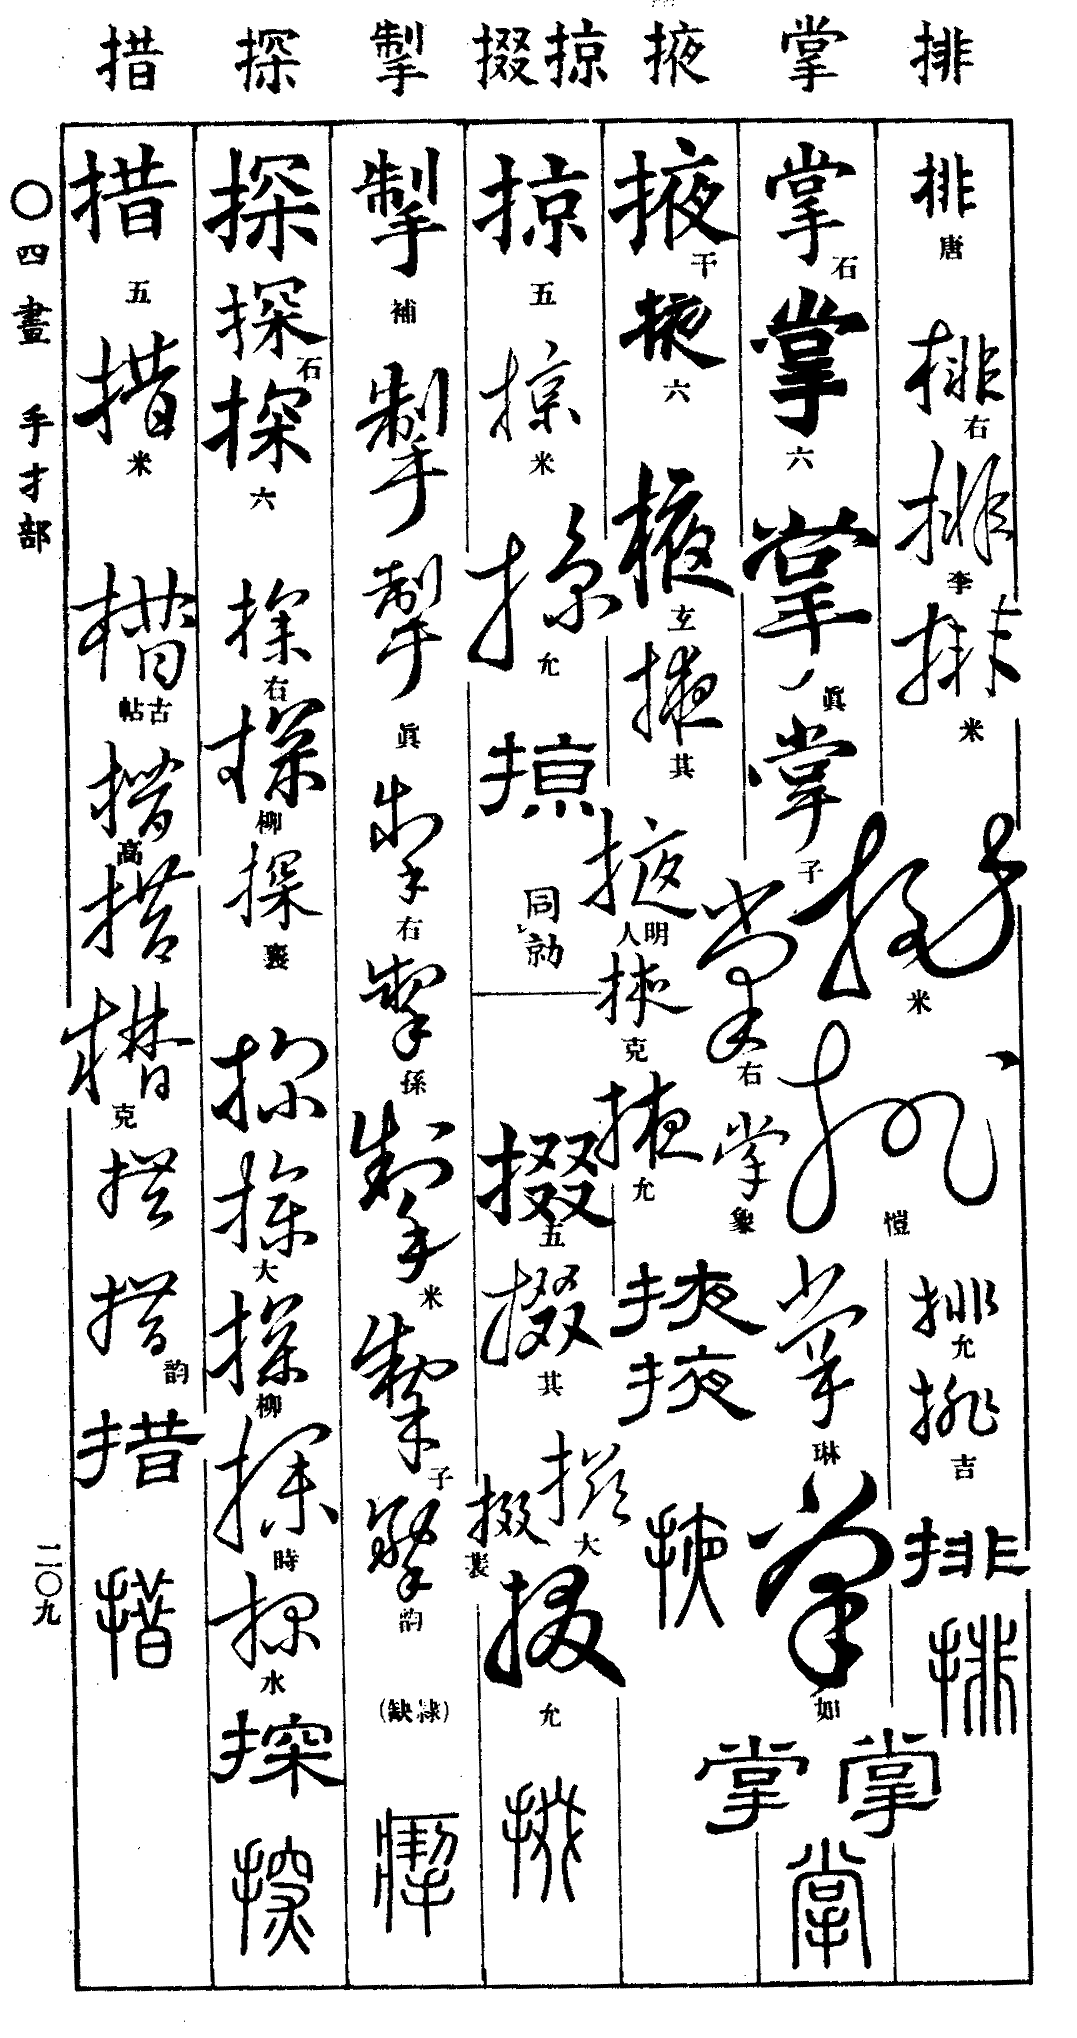 排 掌 掖 掠 掇 掣 探 措
排 唐 排 右 排 李 排 米 排 米 排 愷 排 允 排 吉 排 排
掌 石 掌 六 掌 眞 掌 子 掌 右 掌 象 掌 琳 掌 如 掌 掌 掌
掖 干 掖 六 掖 玄 掖 其 掖 明人 掖 克 掖 允 掖 掖 掖
掠 五 掠 米 掠 允 掠 同勍
掇 五 掇 其 掇 大 掇 裴 掇 允 掇
掣 補 掣 掣 眞 掣 右 掣 孫 掣 米 掣 子 掣 韵 (隷缺) 掣
探 五 探 石 探 六 探 右 探 柳 探 襄 探 探 大 探 柳 探 時 探 水 探 探
措 五 措 米 措 古帖 措 高 措 措 克 措 措 韵 措 措
〇四畫 手扌部
二〇九